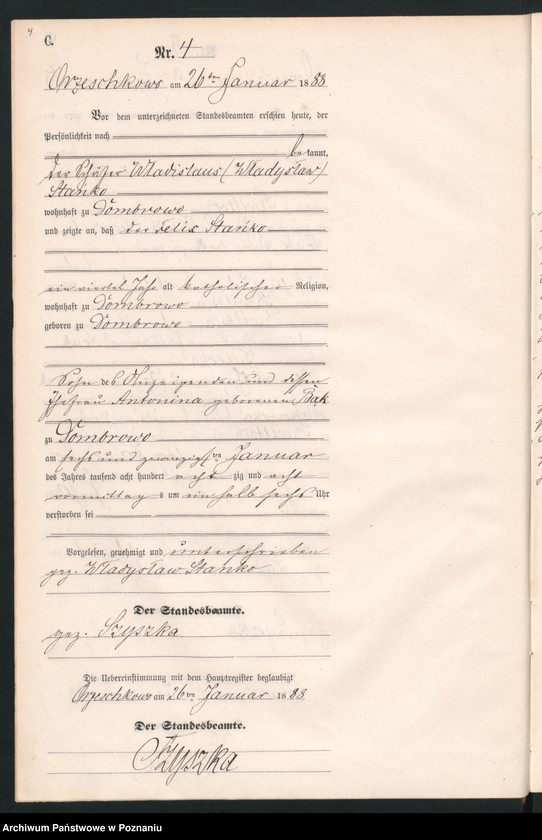 4
C.
Nr. 4
Orzeschkowo am 26ten Januar 1888
Vor dem unterzeichneten Standesbeamten erschien heute, der
Persönlichkeit nach
bekannt,
der Schäfer Wladislaus (Władysław)
Stańko
wohnhaft zu Dombrowo
und zeigte an, daß der Felix Stańko
ein viertel Jahr alt katholischer Religion,
wohnhaft zu Dombrowo
geboren zu Dombrowo
Sohn des Anzeigenden und dessen
Ehefrau Antonina geborenen Bąk
zu Dombrowo
am sechs und zwanzigsten Januar
des Jahres tausend acht hundert achtzig und acht
vormittags um einhalb sechs Uhr
verstorben sei
Vorgelesen, genehmigt und unterschrieben
gez. Władysław Stańko
Der Standesbeamte.
gez. Szyszka
Die Uebereinstimmung mit dem Hauptregister beglaubigt
Orzeschkowo am 26ten Januar 1888
Der Standesbeamte.
Szyszka
Archiwum Państwowe w Poznaniu